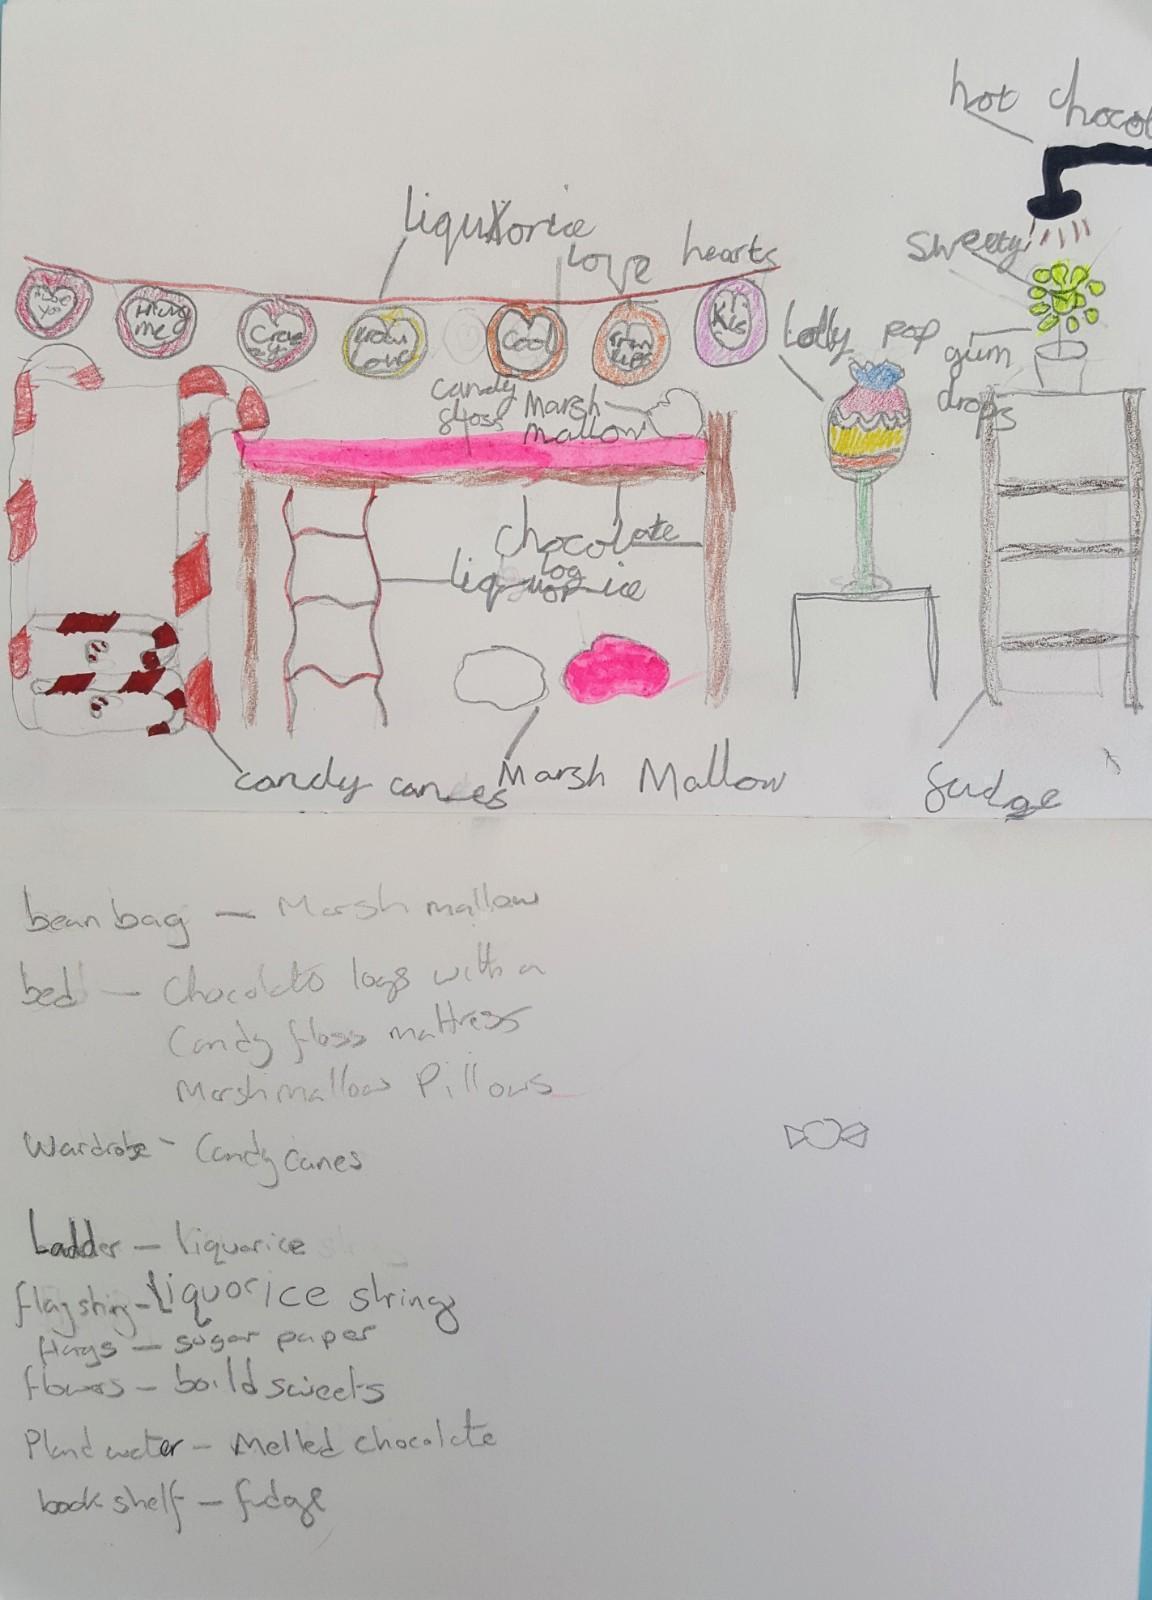 hot chocol
liquXorice
love hearts
sweety
Hug
me
Cool
Kis
Lolly pop
gum
drops
candy
floss
Marsh
mallow
chocolate
log
liquorice
candy canes
Marsh Mallow
fudge
bean bag — Marsh mallow
bed — Chocolate logs with a
Candy floss mattress
Marshmallow Pillows
Wardrobe - Candy canes
Ladder — liquorice
flag string - Liquorice string
flags — sugar paper
flowers — boild sweets
Plant water - Melted chocolate
book shelf — fudge